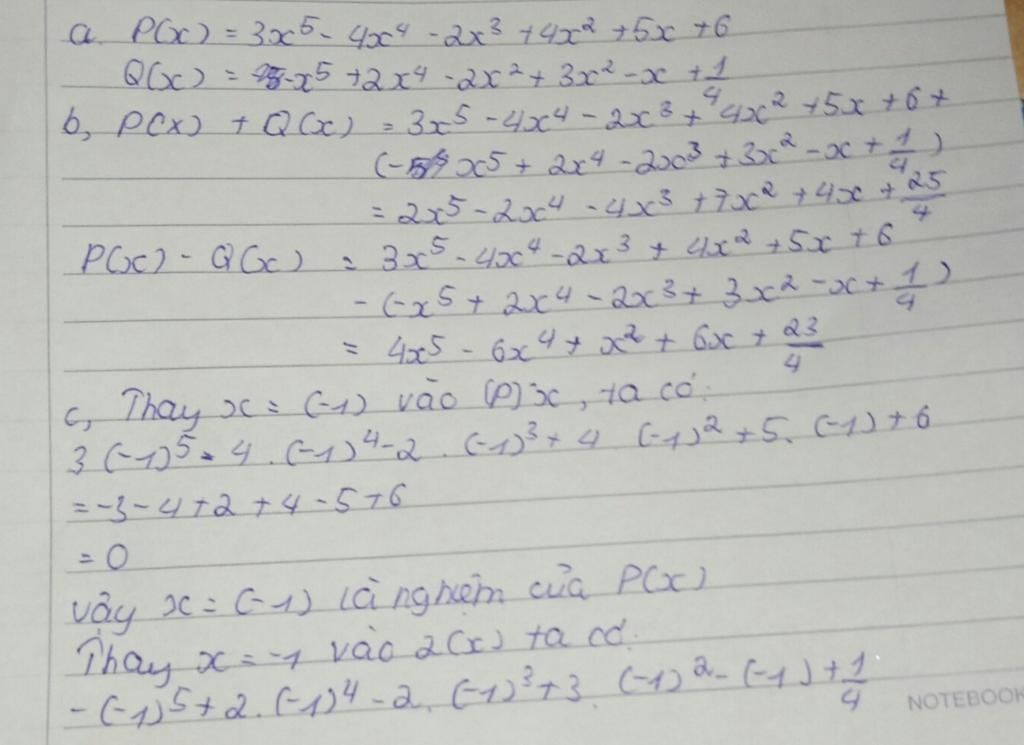 a. P(x) = 3x⁵ - 4x⁴ - 2x³ + 4x² + 5x + 6
Q(x) = -x⁵ + 2x⁴ - 2x² + 3x² - x + 1/4
b, P(x) + Q(x) = 3x⁵ - 4x⁴ - 2x³ + 4x² + 5x + 6 +
(- x⁵ + 2x⁴ - 2x³ + 3x² - x + 1/4)
= 2x⁵ - 2x⁴ - 4x³ + 7x² + 4x + 25/4
P(x) - Q(x) = 3x⁵ - 4x⁴ - 2x³ + 4x² + 5x + 6
- (-x⁵ + 2x⁴ - 2x³ + 3x² - x + 1/4)
= 4x⁵ - 6x⁴ + x² + 6x + 23/4
c, Thay x = (-1) vào (P)x, ta có:
3 (-1)⁵ - 4 . (-1)⁴ - 2 . (-1)³ + 4 (-1)² + 5. (-1) + 6
= -3 - 4 + 2 + 4 - 5 + 6
= 0
Vậy x = (-1) là nghiệm của P(x)
Thay x = -1 vào Q(x) ta có.
- (-1)⁵ + 2. (-1)⁴ - 2. (-1)³ + 3. (-1)² - (-1) + 1/4
NOTEBOOK